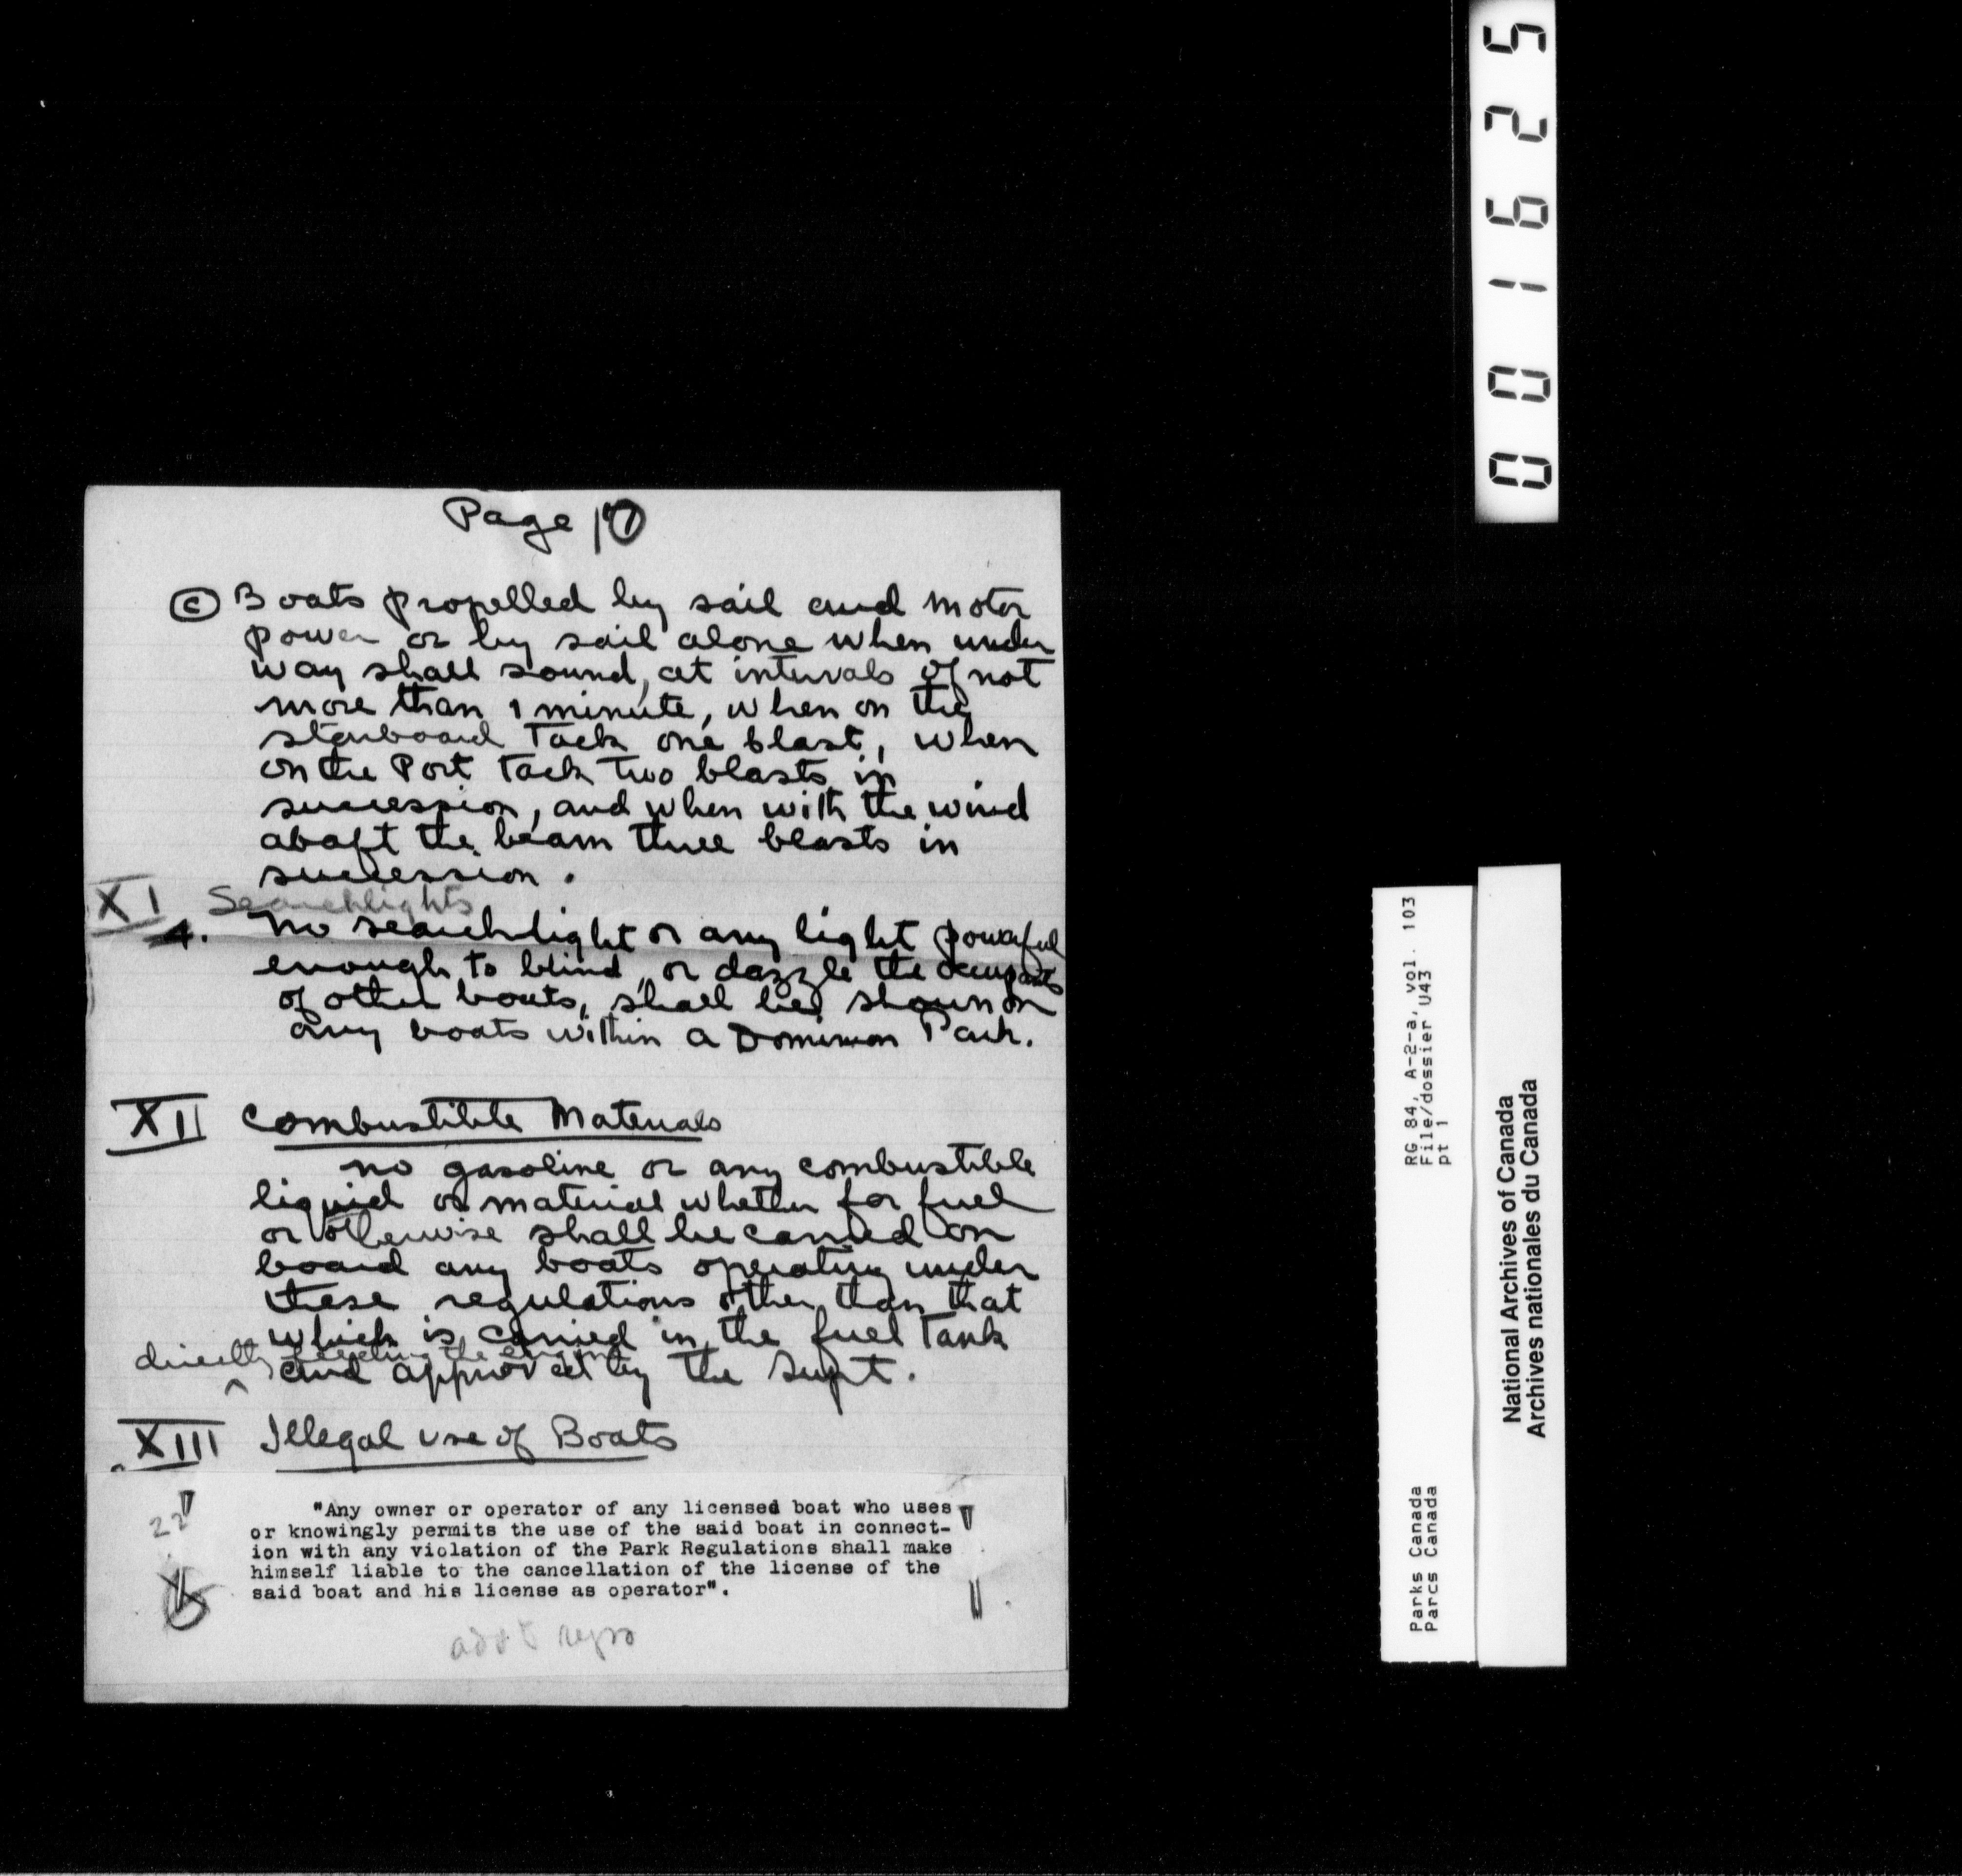 Page 17
(c) Boats propelled by sail and motor
power or by sail alone when under
way shall sound, at intervals of not
more than 1 minute, when on the
starboard Tack one blast, when
on the Port Tack Two blasts in
succession, and when with the wind
abaft the beam three blasts in
succession.
XI Searchlights
4. No searchlight or any light powerful
enough to blind or dazzle the occupants
of other boats, shall be shown on
any boats within a Dominion Park.
XII Combustible Materials
no gasoline or any combustible
liquid or material whether for fuel
or otherwise shall be carried on
board any boats operating under
these regulations other than that
which is carried in the fuel Tank
directly feeding the engine
and approved by the Supt.
XIII Illegal use of Boats
22
"Any owner or operator of any licensed boat who uses
or knowingly permits the use of the said boat in connect-
ion with any violation of the Park Regulations shall make
himself liable to the cancellation of the license of the
said boat and his license as operator".
001625
RG 84, A-2-a, vol. 103
File/dossier U43
pt 1
Parks Canada
Parcs Canada
National Archives of Canada
Archives nationales du Canada